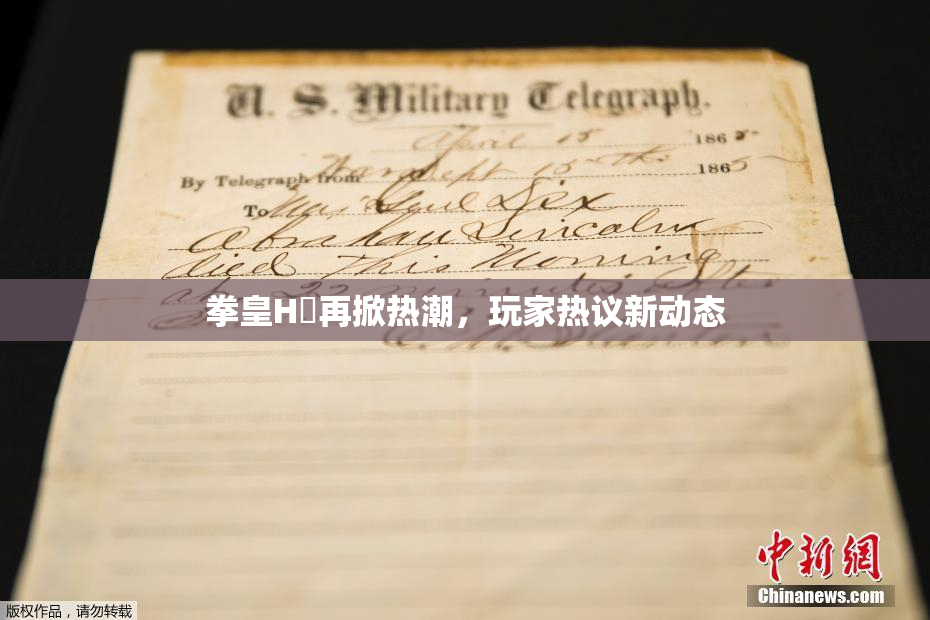 U. S. Military Telegraph.
April 15 1865
By Telegraph from War Dept 15th 1865
To Maj Genl Dix
Abraham Lincoln
died This Morning
at 22 minutes after
拳皇H再掀热潮，玩家热议新动态
中新网
Chinanews.com
版权作品，请勿转载